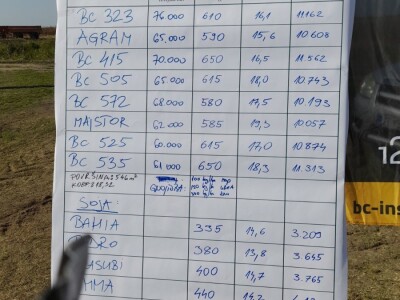 BC 323 76.000 610 16,1 11162
AGRAM 65.000 590 15,6 10.608
BC 415 70.000 650 16,5 11.562
BC 505 65.000 615 18,0 10.743
BC 572 68.000 580 17,5 10.193
MAJSTOR 62.000 585 19,3 10057
BC 525 60.000 615 17,0 10.874
BC 535 61.000 650 18,3 11.313
SOJA
BAHIA 335 14,6 3.209
380 13,8 3.645
400 14,7 3.765
440 14,2
12
bc-ins